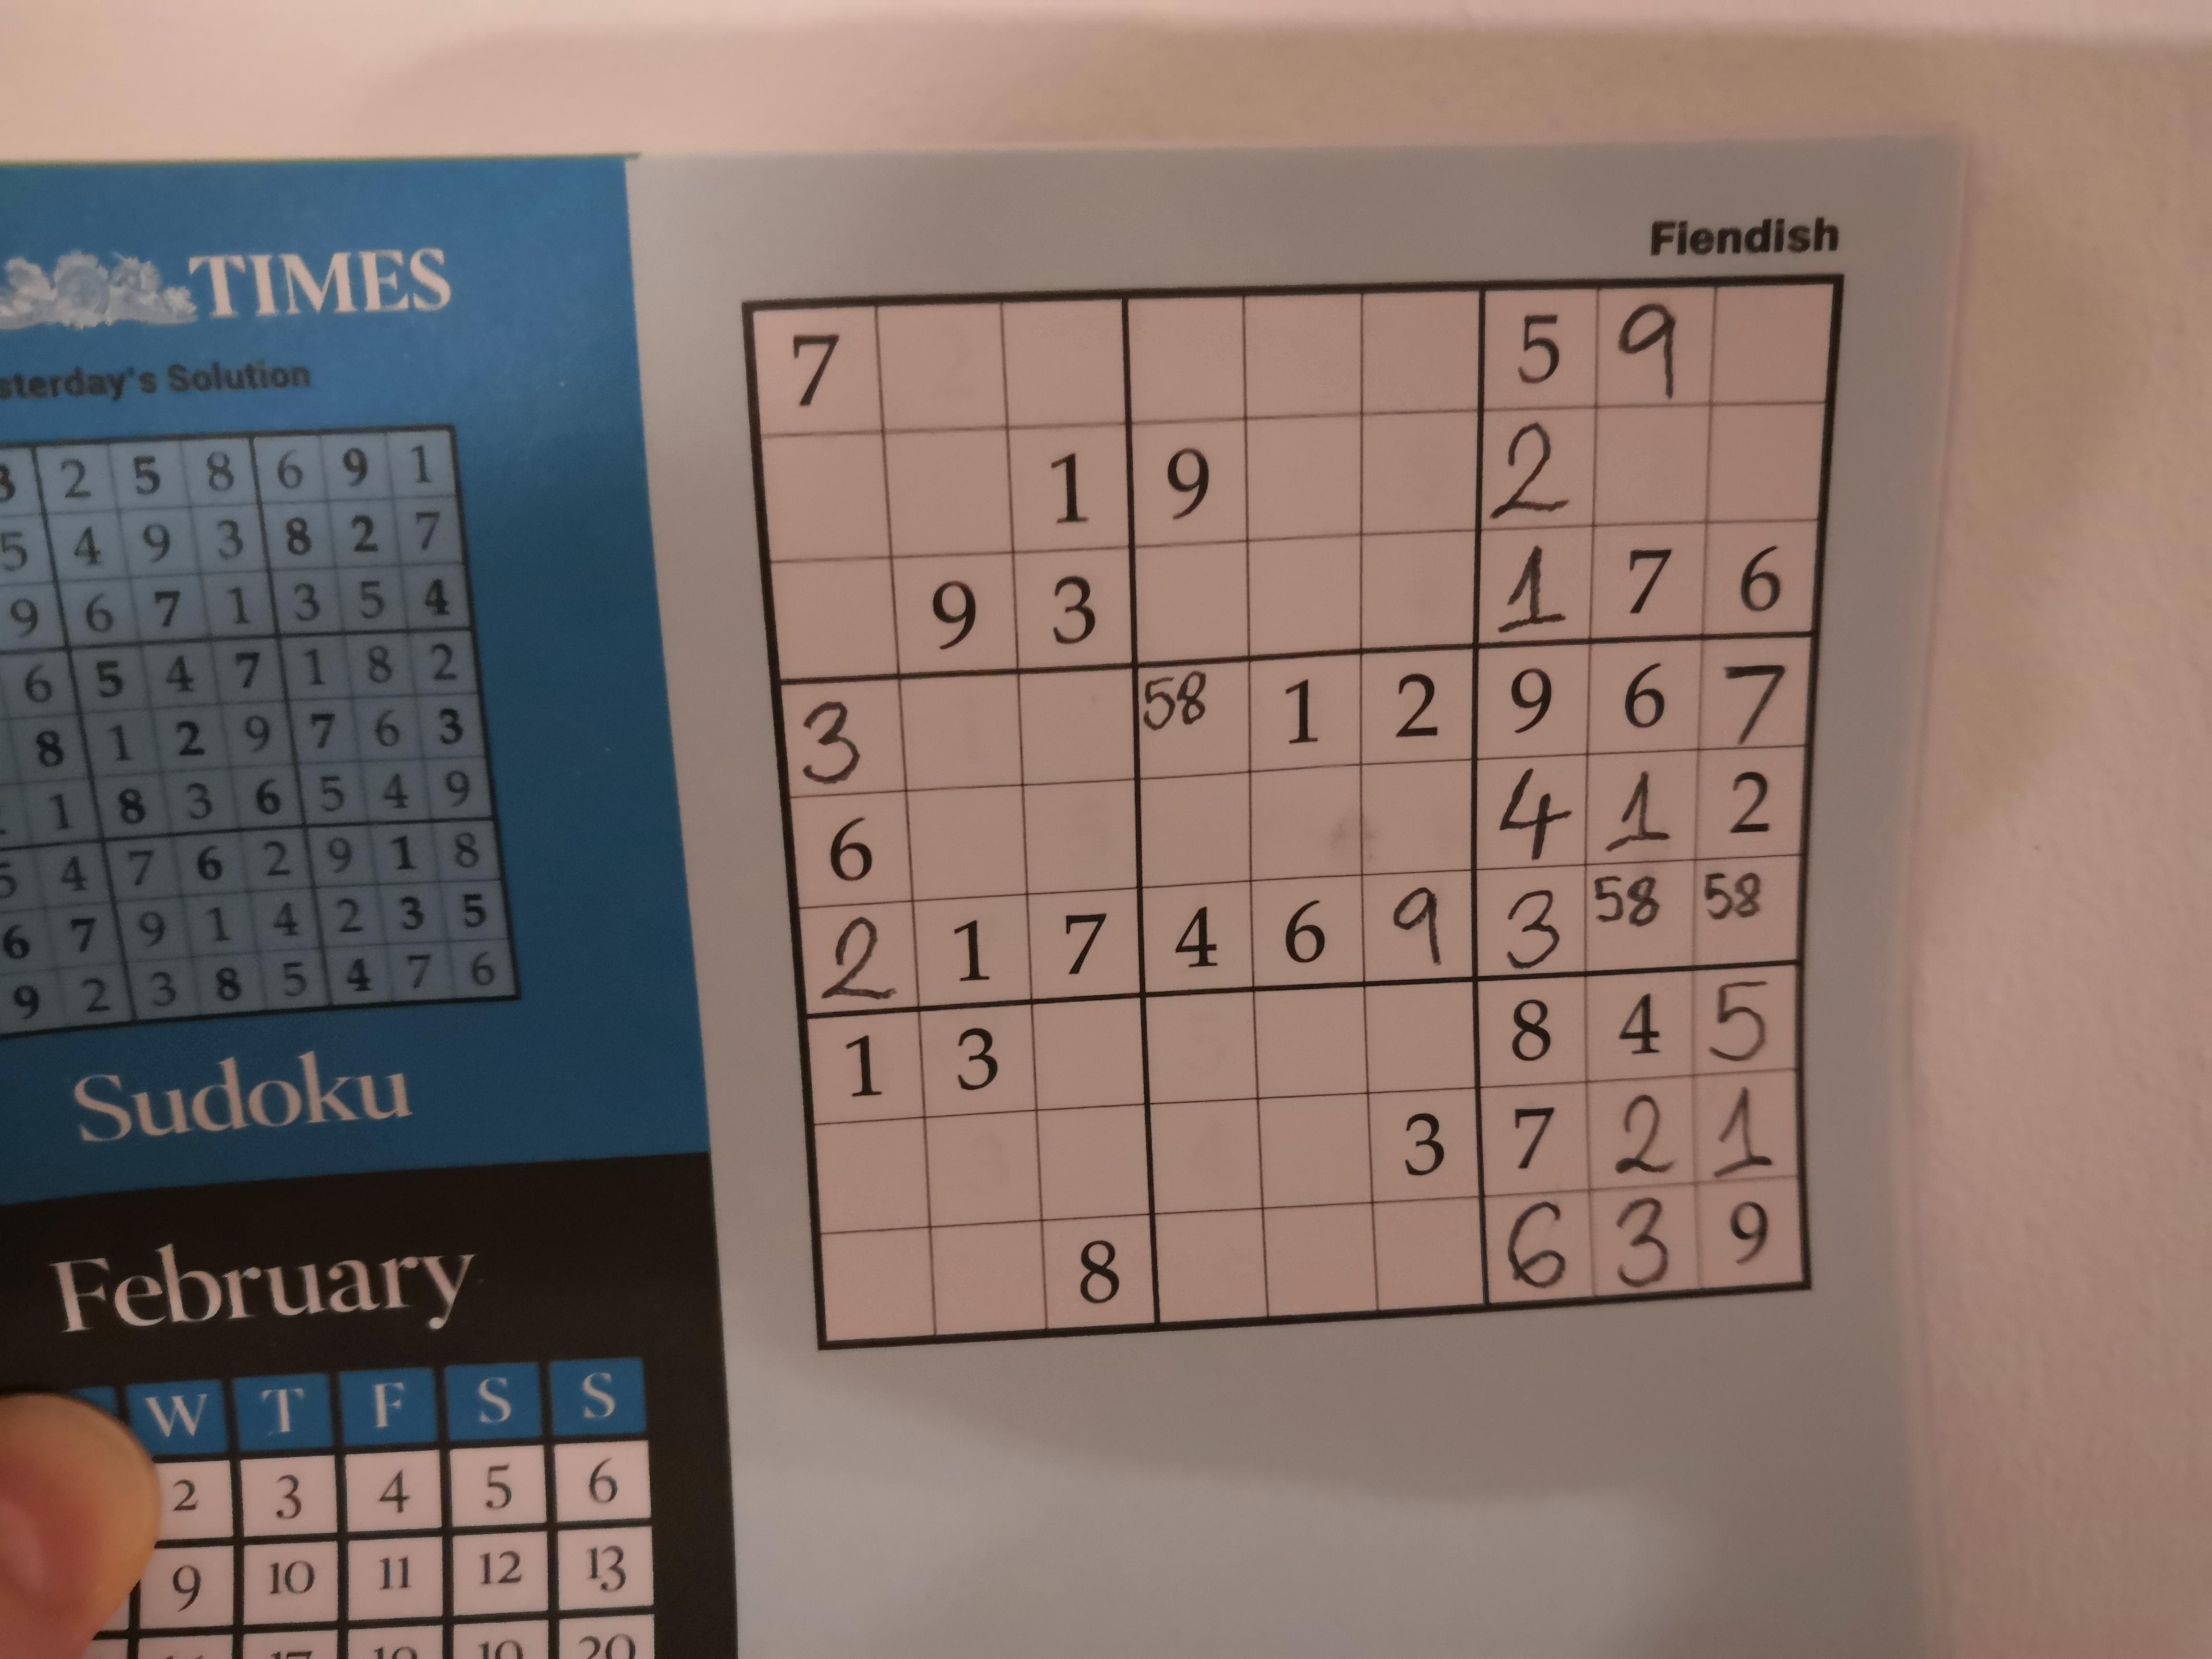 Fiendish
TIMES
sterday's Solution
3 2 5 8 6 9 1
5 4 9 3 8 2 7
9 6 7 1 3 5 4
6 5 4 7 1 8 2
8 1 2 9 7 6 3
1 8 3 6 5 4 9
5 4 7 6 2 9 1 8
6 7 9 1 4 2 3 5
9 2 3 8 5 4 7 6
Sudoku
February
W T F S S
2 3 4 5 6
9 10 11 12 13
17 18 19 20
7 5 9
1 9 2
9 3 1 7 6
3 58 1 2 9 6 7
6 4 1 2
2 1 7 4 6 9 3 58 58
1 3 8 4 5
3 7 2 1
8 6 3 9